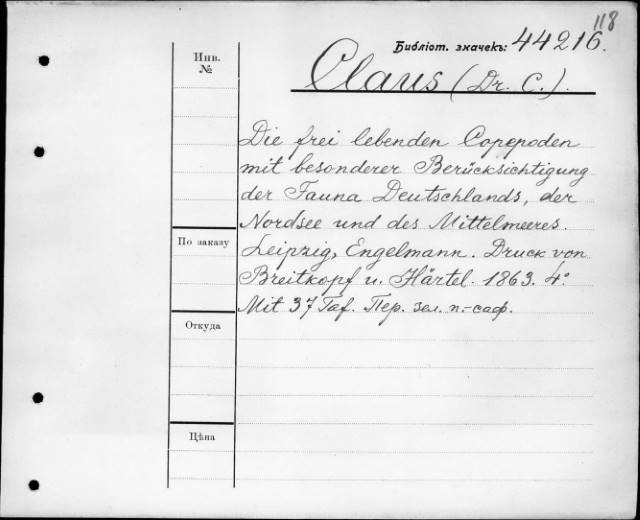 118
Библіот. значекъ: 44216.
Инв.
№
Claus (Dr. C.).
Die frei lebenden Copepoden
mit besonderer Berücksichtigung
der Fauna Deutschlands, der
Nordsee und des Mittelmeeres.
По заказу
Leipzig, Engelmann. Druck von
Breitkopf u. Härtel. 1863. 4º
Mit 37 Taf. Пер. зел. п.-саф.
Откуда
Цѣна